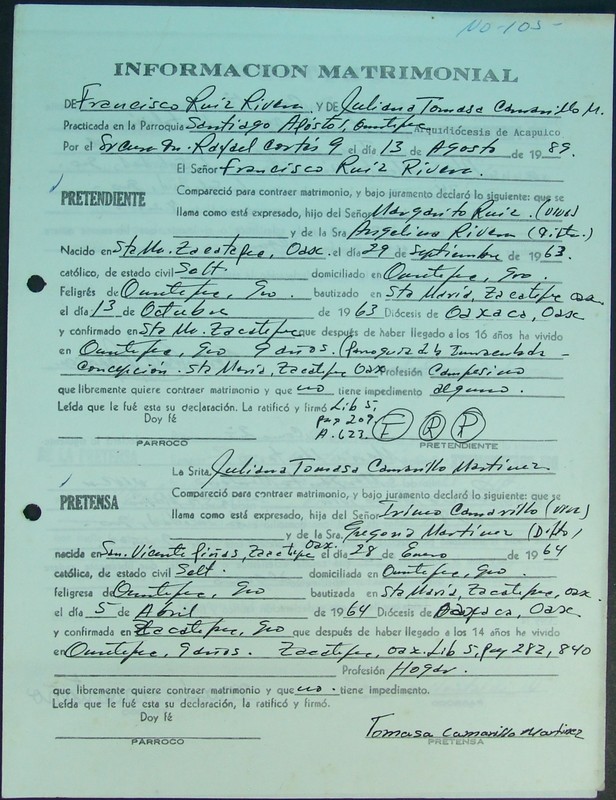 NO-105-
INFORMACION MATRIMONIAL
DE Francisco Ruiz Rivera Y DE Juliana Tomasa Camarillo M.
Practicada en la Parroquia Santiago Apóstol, Ometepec Arquidiócesis de Acapulco
Por el Sr. Cura Dn. Rafael Cortés G el día 13 de Agosto de 1989.
El Señor Francisco Ruiz Rivera.
PRETENDIENTE
Compareció para contraer matrimonio, y bajo juramento declaró lo siguiente: que se
llama como está expresado, hijo del Señor Margarito Ruiz. (Vive)
y de la Sra Angelina Rivera
Nacido en Sta Ma. Zacatepec, Oax. el día 29 de Septiembre de 1963.
católico, de estado civil Solt. domiciliado en Ometepec, Gro.
Feligrés de Ometepec, Gro bautizado en Sta María, Zacatepec Oax.
el día 13 de Octubre de 1963 Diócesis de Oaxaca, Oax
y confirmado en Sta Ma. Zacatepec que después de haber llegado a los 16 años ha vivido
en Ometepec, Gro 9 años. (Parroquia de la Inmaculada -
Concepción. Sta María, Zacatepec Oax Profesión Campesino
que libremente quiere contraer matrimonio y que no tiene impedimento alguno.
Leída que le fué esta su declaración. La ratificó y firmó Lib 5,
Doy fé pag 209, F R R
A. 623.
PARROCO PRETENDIENTE
La Srita. Juliana Tomasa Camarillo Martinez
PRETENSA
Compareció para contraer matrimonio, y bajo juramento declaró lo siguiente: que se
llama como está expresado, hija del Señor Irineo Camarillo (Vive)
y de la Sra. Gregoria Martinez (Difta)
nacida en San Vicente Piñas, Zacatepec Oax. el día 28 de Enero de 1964
católica, de estado civil Solt. domiciliada en Ometepec, Gro
feligresa de Ometepec, Gro bautizada en Sta María, Zacatepec, Oax.
el día 5 de Abril de 1964 Diócesis de Oaxaca, Oax
y confirmada en Zacatepec, Gro que después de haber llegado a los 14 años ha vivido
en Ometepec, 9 años. Zacatepec, Oax. Lib 5, Pag 282, 840
Profesión Hogar.
que libremente quiere contraer matrimonio y que no tiene impedimento.
Leída que le fué esta su declaración, la ratificó y firmó.
Doy fé
Tomasa Camarillo Martinez
PARROCO PRETENSA